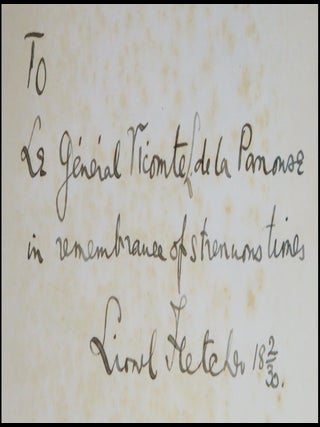 To
Le Général Vicomte de la Panouse
in remembrance of strenuous times
Lionel Fletcher 18 2/30.